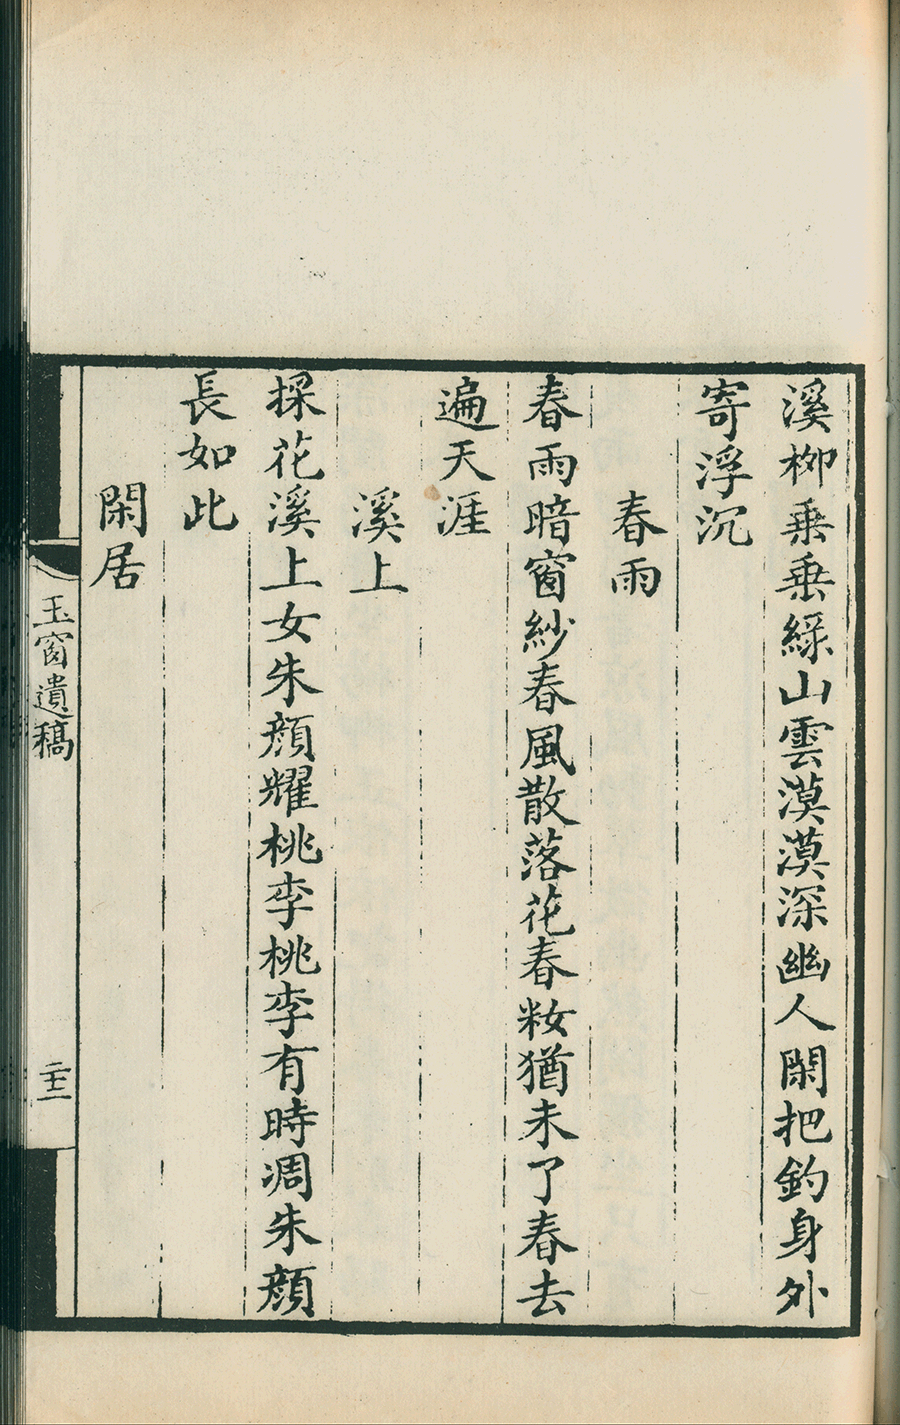 溪柳垂垂綠山雲漠漠深幽人閑把釣身外
寄浮沉
春雨
春雨暗窗紗春風散落花春粧猶未了春去
遍天涯
溪上
採花溪上女朱顏耀桃李桃李有時凋朱顏
長如此
閑居
玉窗遺稿
二十三